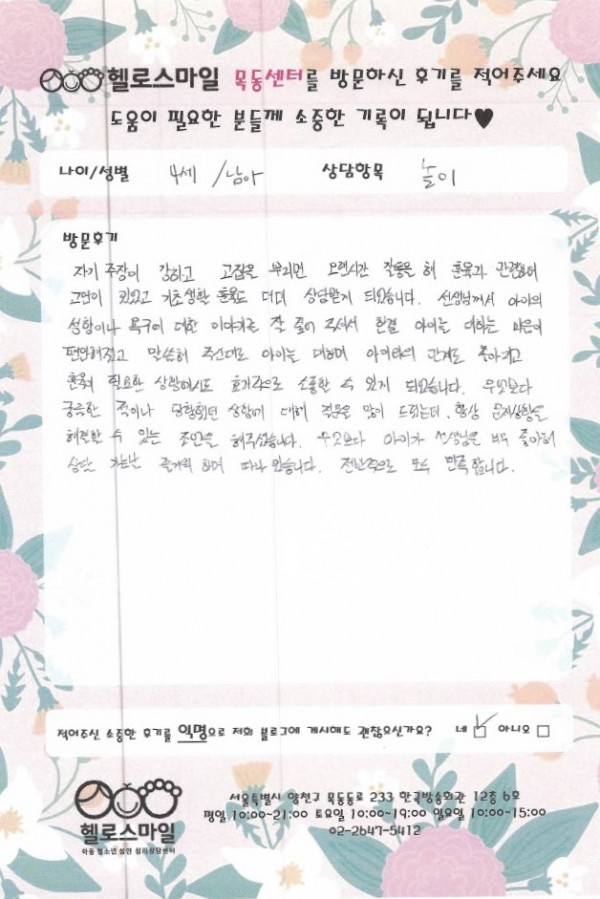 헬로스마일 목동센터를 방문하신 후기를 적어주세요
도움이 필요한 분들께 소중한 기록이 됩니다♥
나이/성별 4세 /남아 상담항목 놀이
방문후기
자기 주장이 강하고 고집을 부리면 오랜시간 활동을 해 훈육과 관련하여
고민이 있었고 기초생활 훈육도 더뎌 상담받게 되었습니다. 선생님께서 아이의
성향이나 욕구에 대한 이야기를 잘 풀어 주셔서 한결 아이를 대하는 마음이
편안해졌고 말씀해 주신대로 아이를 대하며 아이와의 관계도 좋아지고
훈육이 필요한 상황에서도 효과적으로 소통할 수 있게 되었습니다. 무엇보다
궁금한 점이나 당황했던 상황에 대해 질문을 많이 드렸는데 항상 문제상황을
해결할 수 있는 조언을 해주셨습니다. 무엇보다 아이가 선생님을 너무 좋아해
상담 가는날 즐거워 하며 다니고 있습니다. 전반적으로 모두 만족합니다.
적어주신 소중한 후기를 익명으로 저희 블로그에 게시해도 괜찮으신가요? 네 아니오
헬로스마일
아동 청소년 성인 심리상담센터
서울특별시 양천구 목동동로 233 한국방송회관 12층 6호
평일 10:00~21:00 토요일 10:00~19:00 일요일 10:00~15:00
02-2647-5412